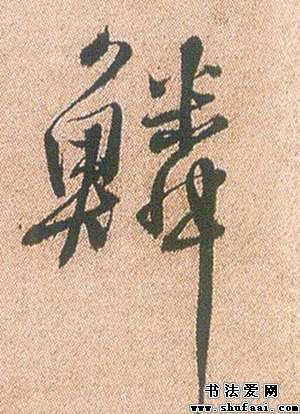 鳞
书法爱网
www.shufaai.com